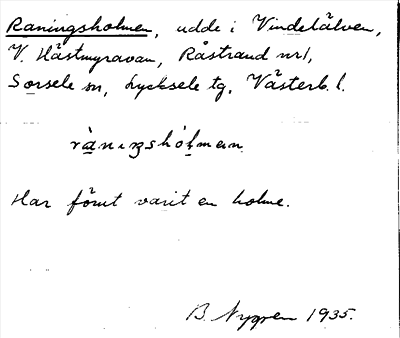 Raningsholmen, udde i Vindelälven,
V. Hästmyravan, Råstrand nr 1,
Sorsele sn, Lycksele tg, Västerb. l.
rànıŋshólmen
Har förut varit en holme.
B. Nygren 1935.